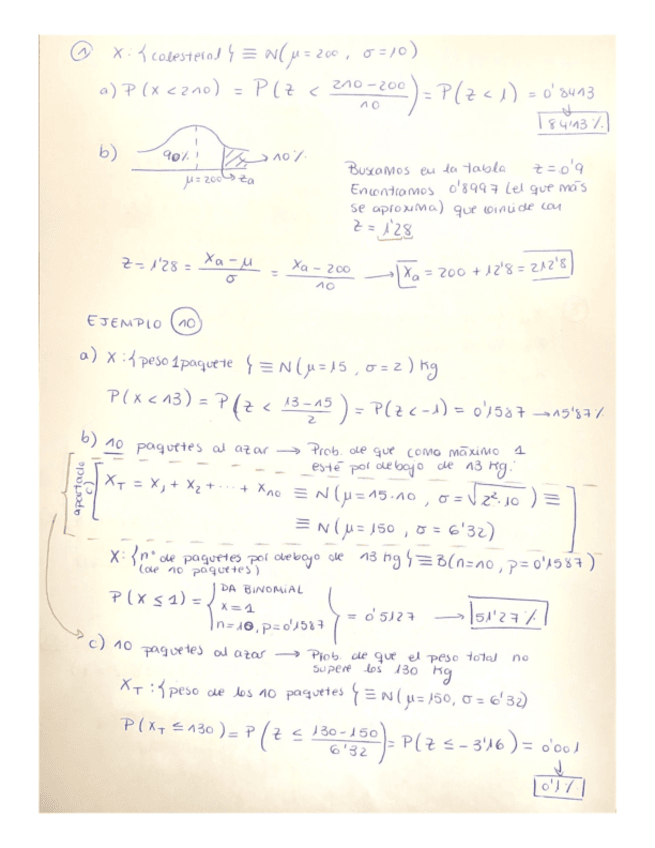 ① X: { colesterol } ≡ N(μ=200, σ=10)
a) P(X<210) = P(Z < (210-200)/10) = P(Z<1) = 0'8413
↓
84'13%
b) 90% → 10%
μ=200 → Za
Buscamos en la tabla z=0'9
Encontramos 0'8997 (el que más
se aproxima) que coincide con
Z = 1'28
Z = 1'28 = (Xa-μ)/σ = (Xa-200)/10 → Xa = 200 + 12'8 = 212'8
EJEMPLO ⑩
a) X: { peso 1 paquete } ≡ N(μ=15, σ=2) kg
P(X<13) = P(Z < (13-15)/2) = P(Z<-1) = 0'1587 → 15'87%
b) 10 paquetes al azar → Prob. de que como máximo 1
esté por debajo de 13 kg.
apartado c)
XT = X1 + X2 + ... + X10 ≡ N(μ=15·10, σ=√(2²·10)) ≡
≡ N(μ=150, σ=6'32)
X: { nº de paquetes por debajo de 13 kg } ≡ B(n=10, p=0'1587)
(de 10 paquetes)
P(X≤1) = { DA BINOMIAL
x=1
n=10, p=0'1587 } = 0'5127 → 51'27%
c) 10 paquetes al azar → Prob. de que el peso total no
supere los 130 kg
XT: { peso de los 10 paquetes } ≡ N(μ=150, σ=6'32)
P(XT ≤ 130) = P(Z ≤ (130-150)/6'32) = P(Z ≤ -3'16) = 0'001
↓
0'1%